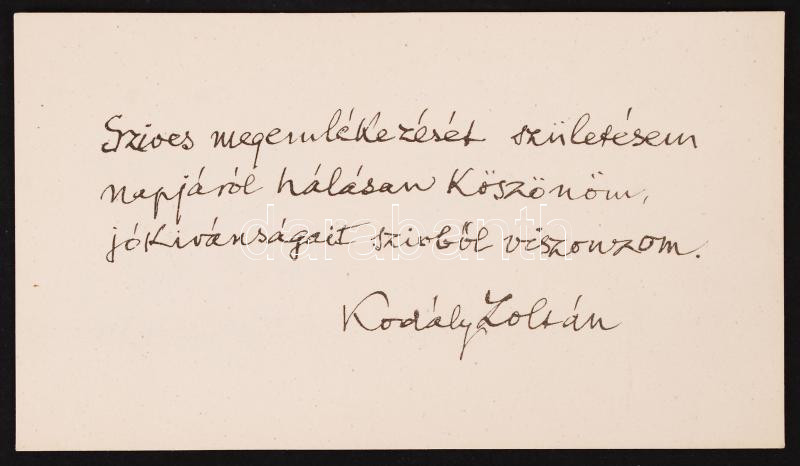 Szives megemlékezését születésem
napjáról hálásan köszönöm,
jókivánságait szivből viszonzom.
darabanth
Kodály Zoltán